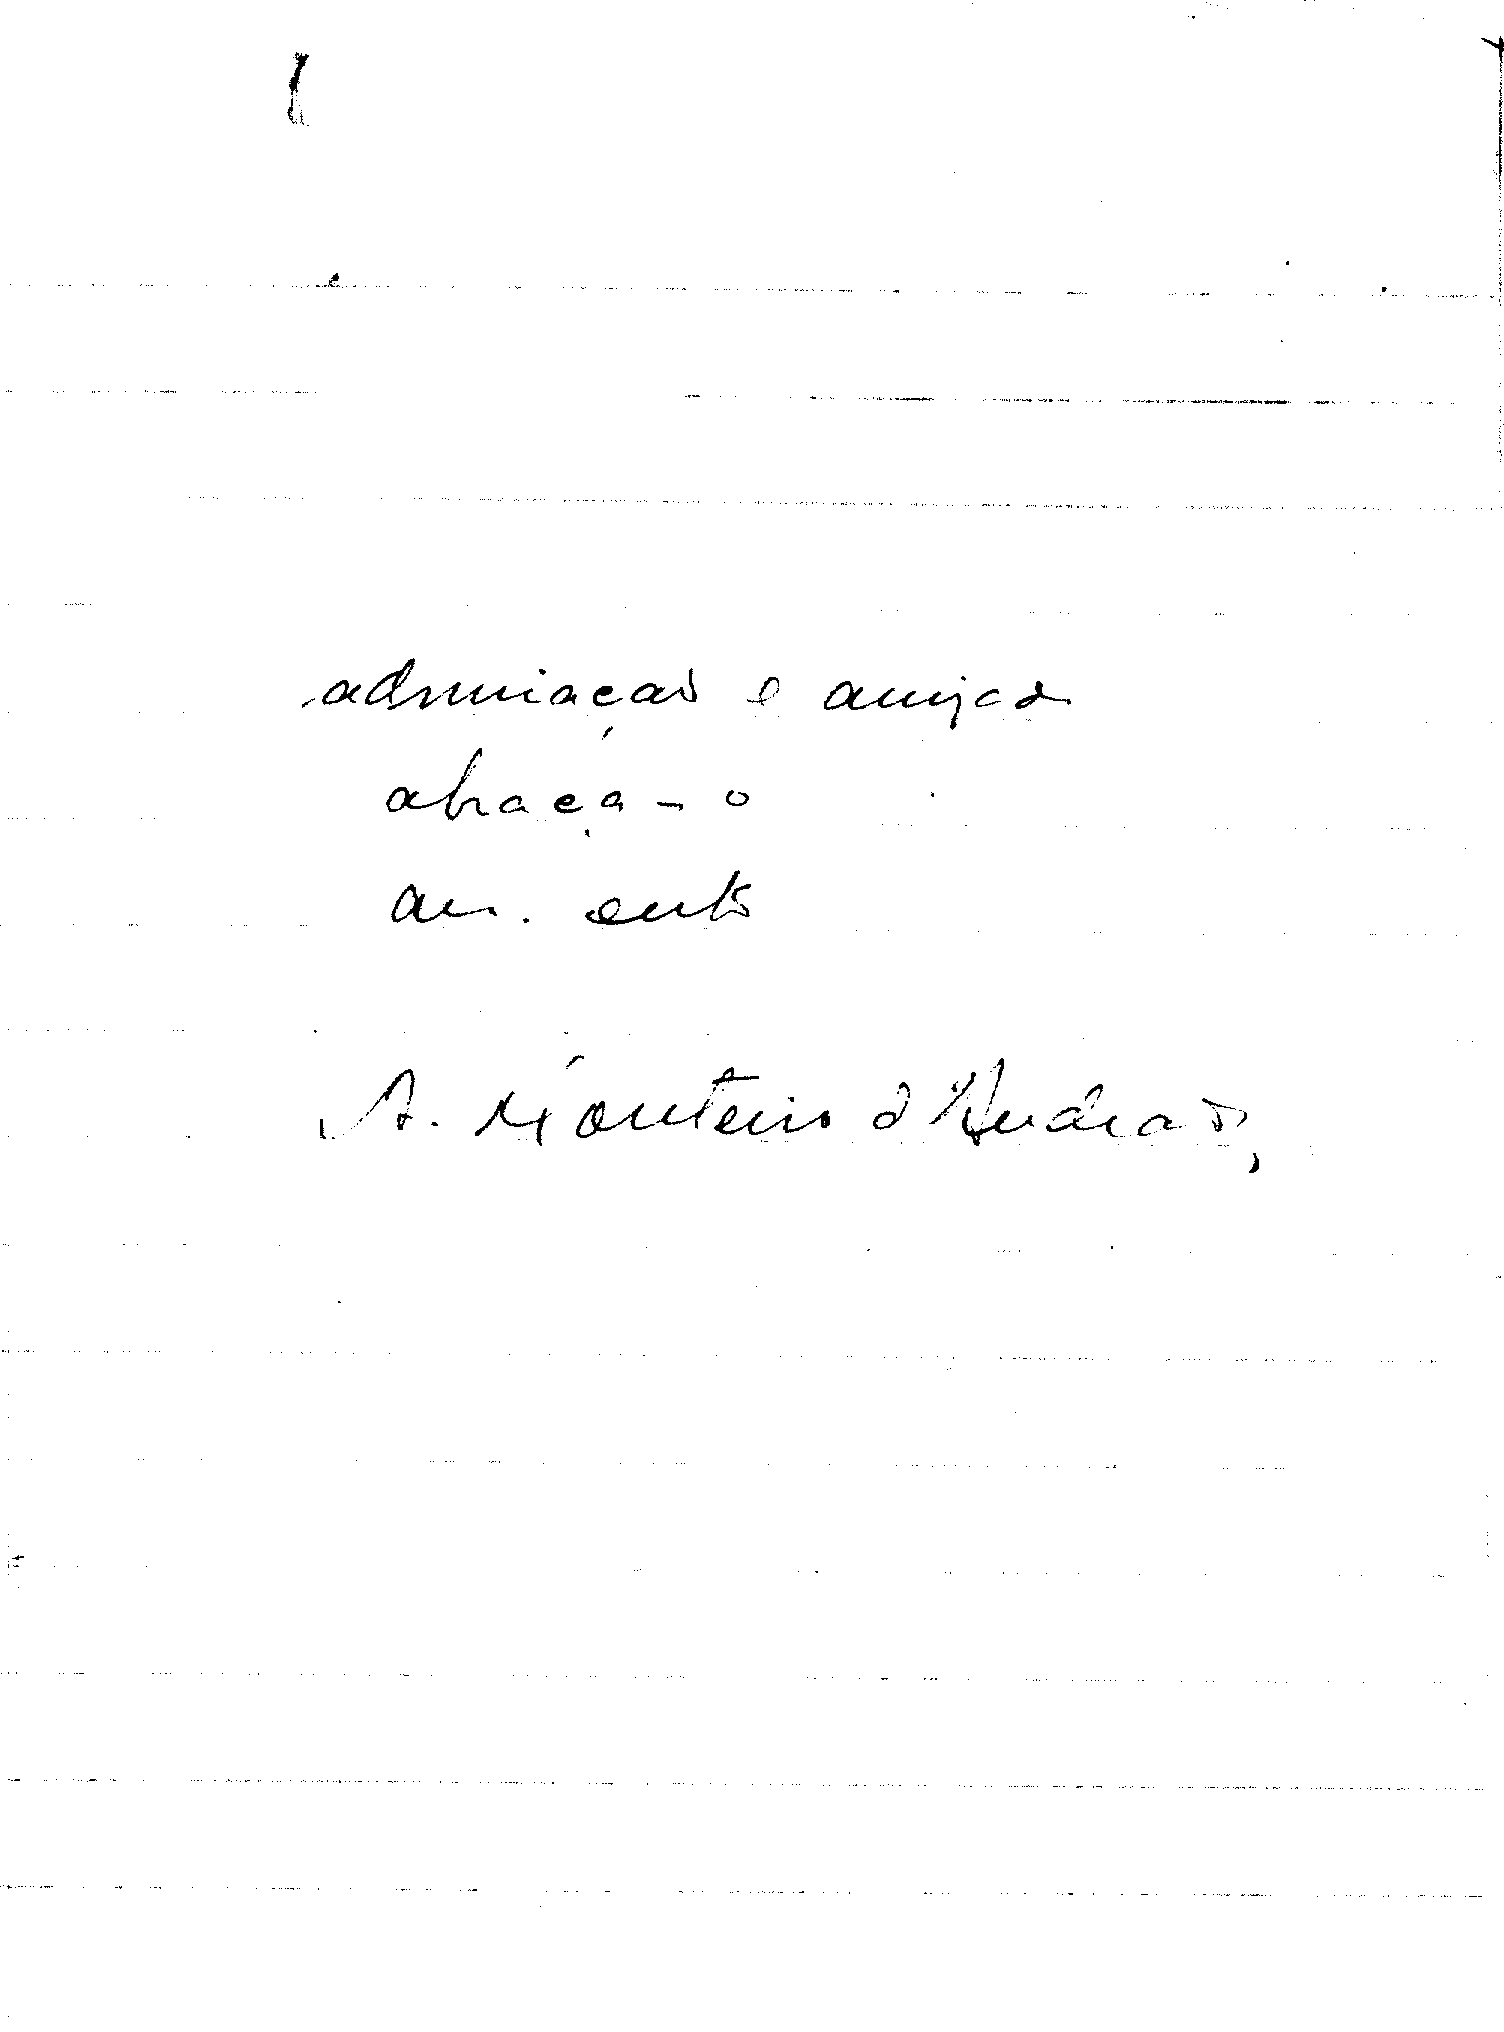 admiração e amizade
abraça-o
am. grato
A. Monteiro d'Andrade,